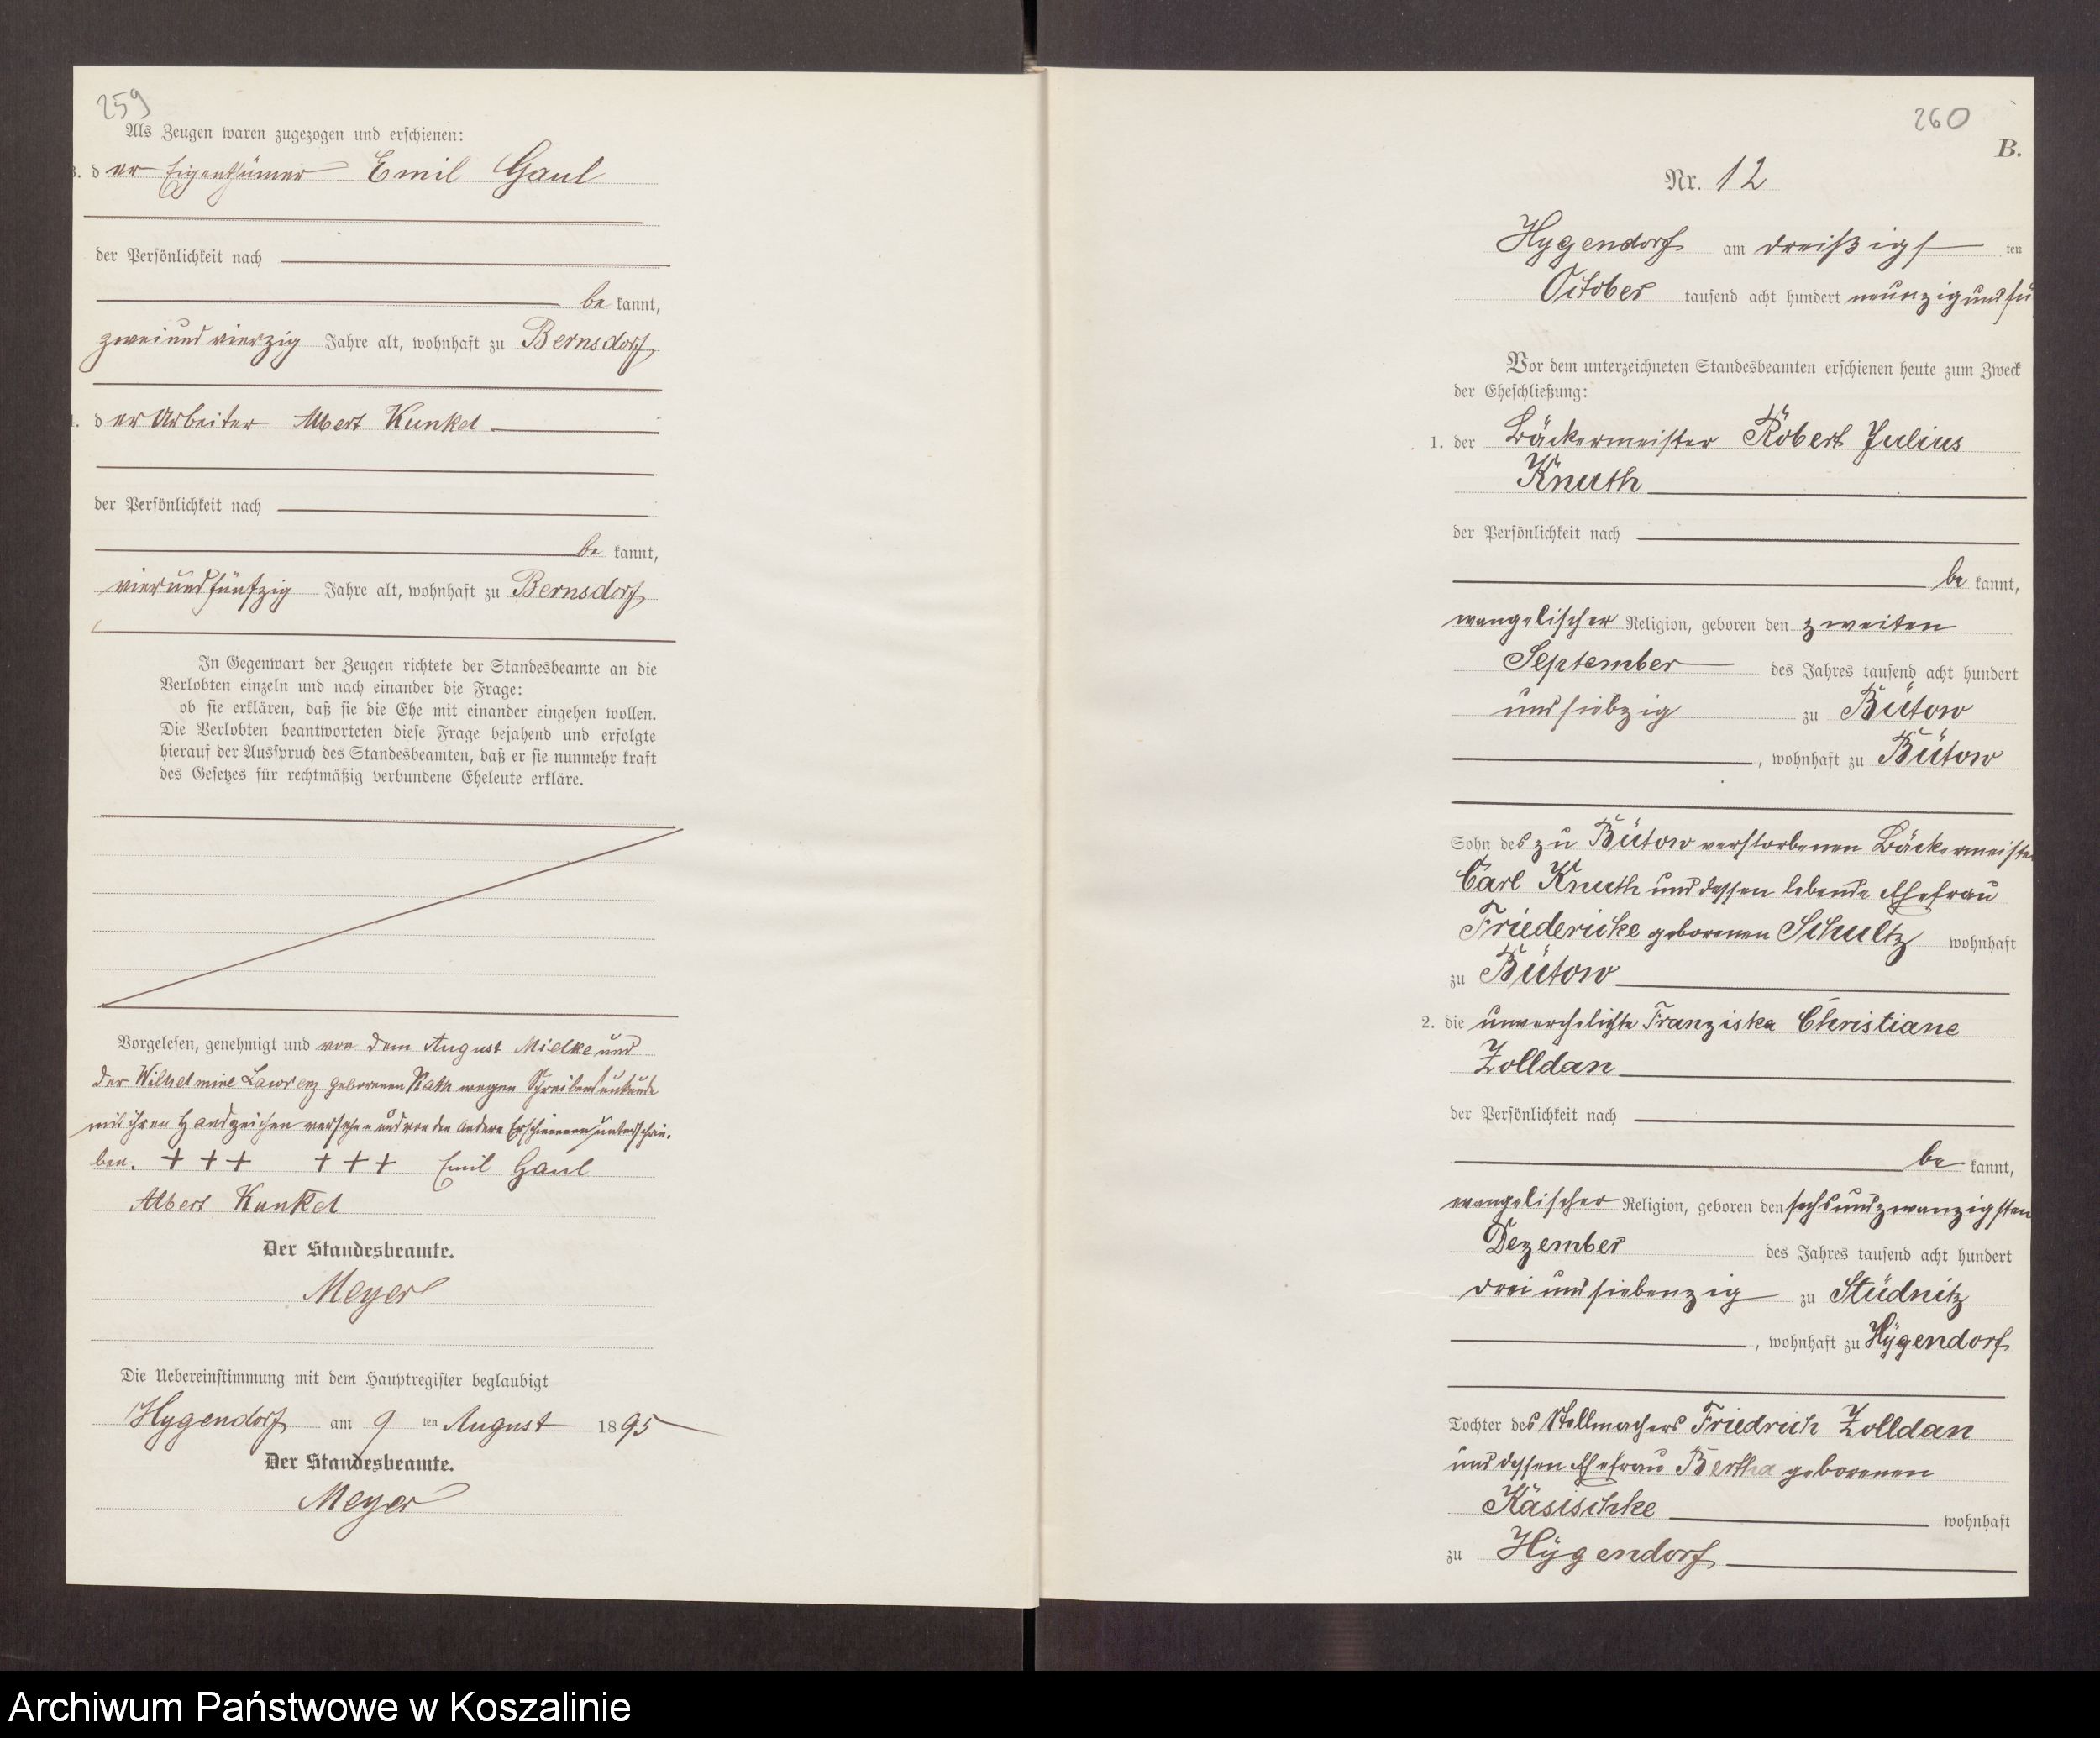 259
Als Zeugen waren zugezogen und erschienen:
3. der Eigenthümer Emil Gaul
der Persönlichkeit nach
bekannt,
zweiundvierzig Jahre alt, wohnhaft zu Bernsdorf
4. der Arbeiter Albert Kunkel
der Persönlichkeit nach
bekannt,
vierundfünfzig Jahre alt, wohnhaft zu Bernsdorf
In Gegenwart der Zeugen richtete der Standesbeamte an die
Verlobten einzeln und nach einander die Frage:
ob sie erklären, daß sie die Ehe mit einander eingehen wollen.
Die Verlobten beantworteten diese Frage bejahend und erfolgte
hierauf der Ausspruch des Standesbeamten, daß er sie nunmehr kraft
des Gesetzes für rechtmäßig verbundene Eheleute erkläre.
Vorgelesen, genehmigt und von dem August Mielke und
der Wilhelmine Lawrenz geborenen Rath wegen Schreibensunkunde
mit ihren Handzeichen versehen und von den andern Erschienenen unterschrie-
ben. +++ +++ Emil Gaul
Albert Kunkel
Der Standesbeamte.
Meyer
Die Uebereinstimmung mit dem Hauptregister beglaubigt
Hygendorf am 9 ten August 1895
Der Standesbeamte.
Meyer
260
B.
Nr. 12
Hygendorf am dreißigst ten
October tausend acht hundert neunzig und fü
Vor dem unterzeichneten Standesbeamten erschienen heute zum Zweck
der Eheschließung:
1. der Bäckermeister Robert Julius
Knuth
der Persönlichkeit nach
bekannt,
evangelischer Religion, geboren den zweiten
September des Jahres tausend acht hundert
und siebzig zu Bütow
, wohnhaft zu Bütow
Sohn des zu Bütow verstorbenen Bäckermeister
Carl Knuth und dessen lebende Ehefrau
Friedericke geborenen Schultz wohnhaft
zu Bütow
2. die unverehelichte Franziska Christiane
Zolldan
der Persönlichkeit nach
bekannt,
evangelischer Religion, geboren den sechsundzwanzigsten
Dezember des Jahres tausend acht hundert
drei und siebenzig zu Stüdnitz
, wohnhaft zu Hygendorf
Tochter des Stellmachers Friedrich Zolldan
und dessen Ehefrau Bertha geborenen
Käsischke wohnhaft
zu Hygendorf
Archiwum Państwowe w Koszalinie